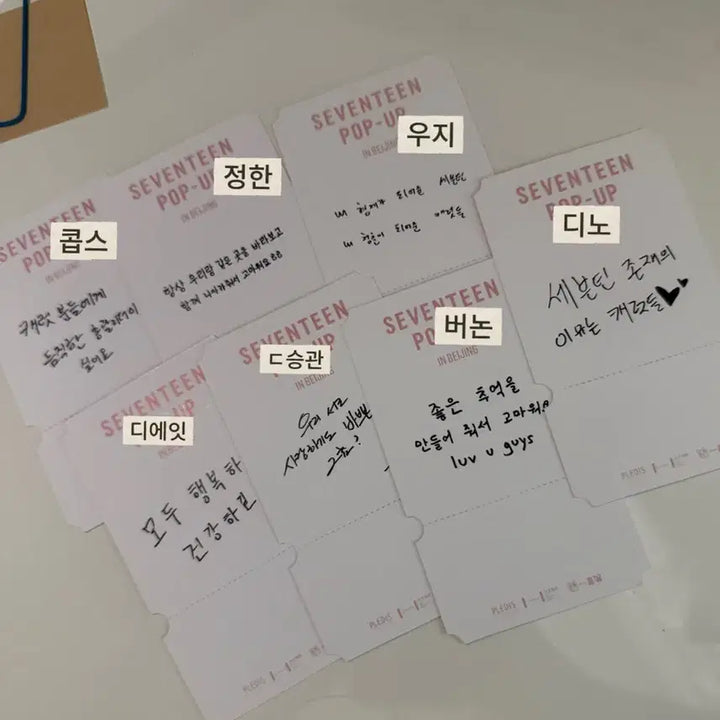 SEVENTEEN
POP-UP
IN BEIJING
우지
내 형제가 되어준 세븐틴
내 청춘이 되어준 캐럿들
SEVENTEEN
POP-UP
IN BEIJING
정한
항상 우리랑 같은 곳을 바라보고
함께 나아가줘서 고마워요
SEVENTEEN
POP-UP
디노
세븐틴 존재의
이유는 캐럿들
PLEDIS
SEVENTEEN
POP
IN BEIJING
콥스
캐럿 분들에게
듬직한 총괄리더이
싶어요
SEVENTEEN
POP
IN BEIJING
버논
좋은 추억을
만들어 줘서 고마워요
luv u guys
PLEDIS
SEVENTEEN
IN BEIJING
ㄷ승관
우리 서로
사랑하기도 바쁘
그쵸?
PLEDIS
SEVENTEEN
POP-UP
디에잇
모두 행복하
건강하고
PLEDIS